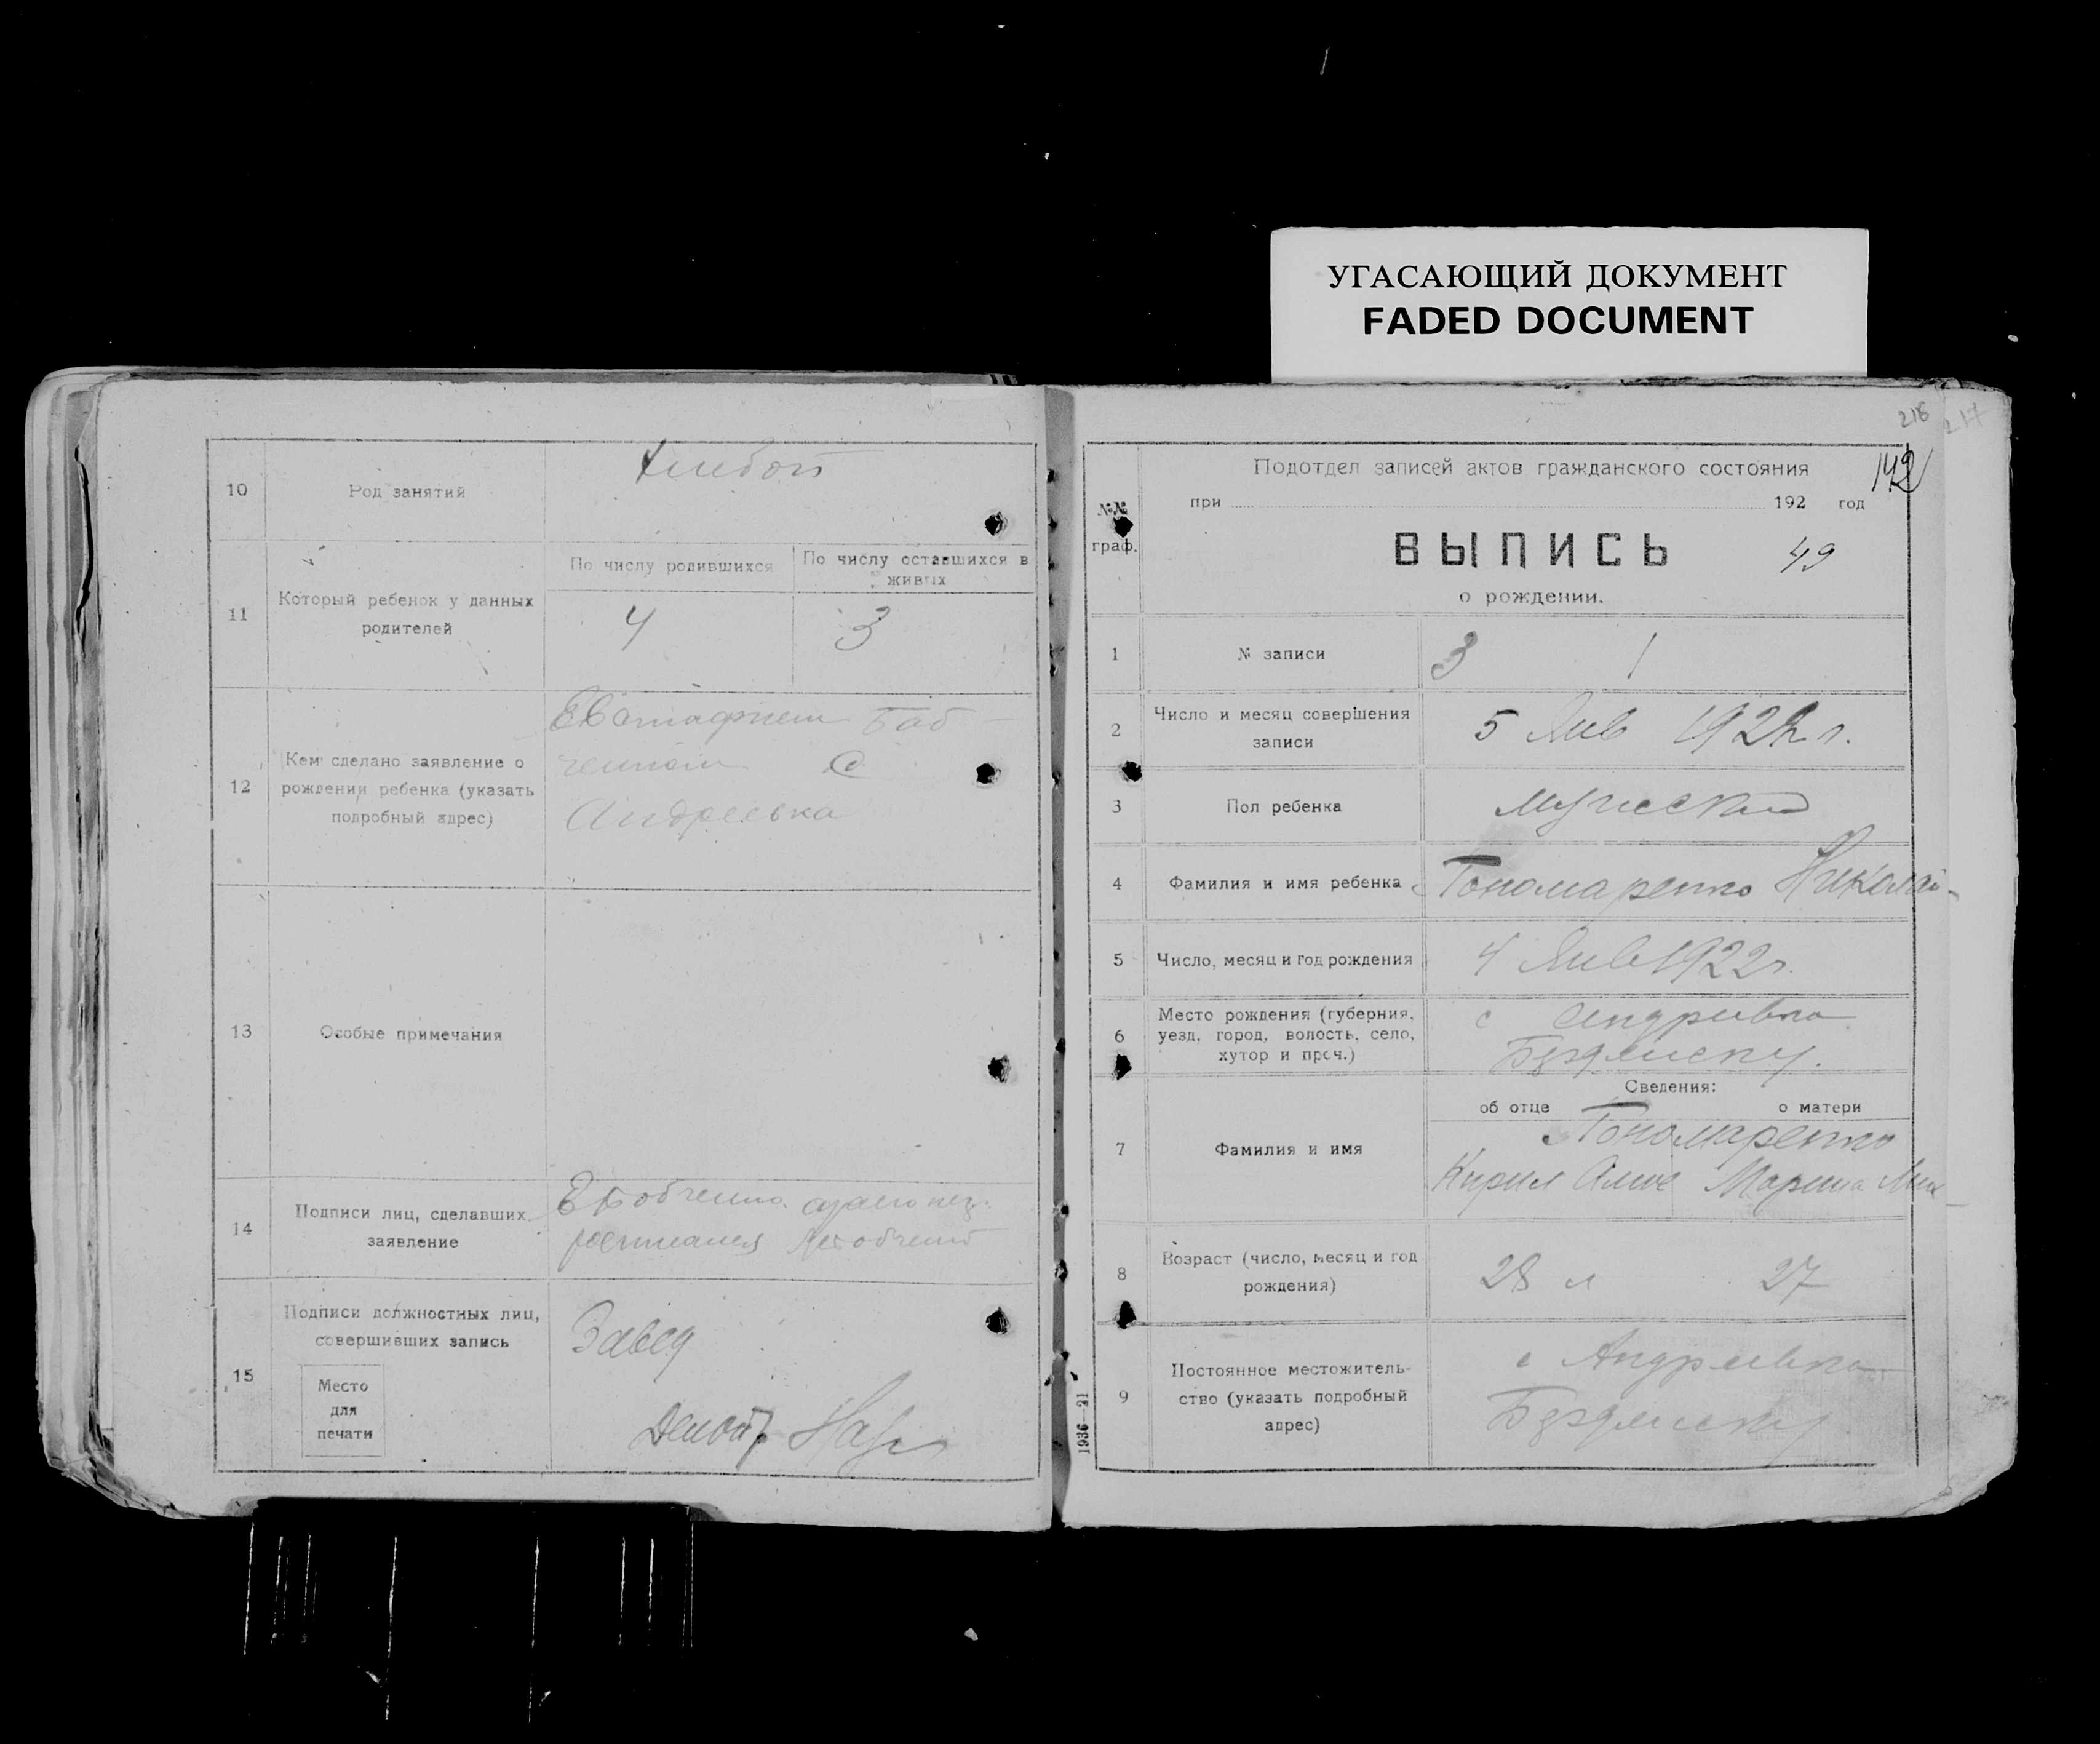 УГАСАЮЩИЙ ДОКУМЕНТ
FADED DOCUMENT
10
Род занятий
11
Который ребенок у данных
родителей
По числу родившихся
По числу оставшихся в
живых
4
3
12
Кем сделано заявление о
рождении ребенка (указать
подробный адрес)
Евстафием Баб
ченком С
Андреевка
13
Особые примечания
14
Подписи лиц, сделавших
заявление
15
Подписи должностных лиц,
совершивших запись
Место
для
печати
Завед
216
217
142
Подотдел записей актов гражданского состояния
при 192 год
№№
граф.
ВЫПИСЬ
49
о рождении.
1
№ записи
3
2
Число и месяц совершения
записи
5 Янв 1922 г.
3
Пол ребенка
мужеской
4
Фамилия и имя ребенка
Пономаренко Николай
5
Число, месяц и год рождения
4 Янв 1922 г.
6
Место рождения (губерния,
уезд, город, волость, село,
хутор и проч.)
с Андреевка
Сведения:
об отце
о матери
7
Фамилия и имя
Пономаренко
Кирил Марина
8
Возраст (число, месяц и год
рождения)
28 л
27
9
Постоянное местожитель-
ство (указать подробный
адрес)
с Андреевка
1936—21